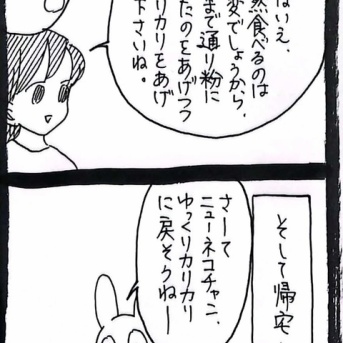 はいえ、
然食べるのは
変でしょうから、
まで通り粉に
たのをあげつつ
リカリをあげ
下さいね。
そして帰宅
さーて
ニューネコチャン、
ゆっくりカリカリ
に戻そうねー